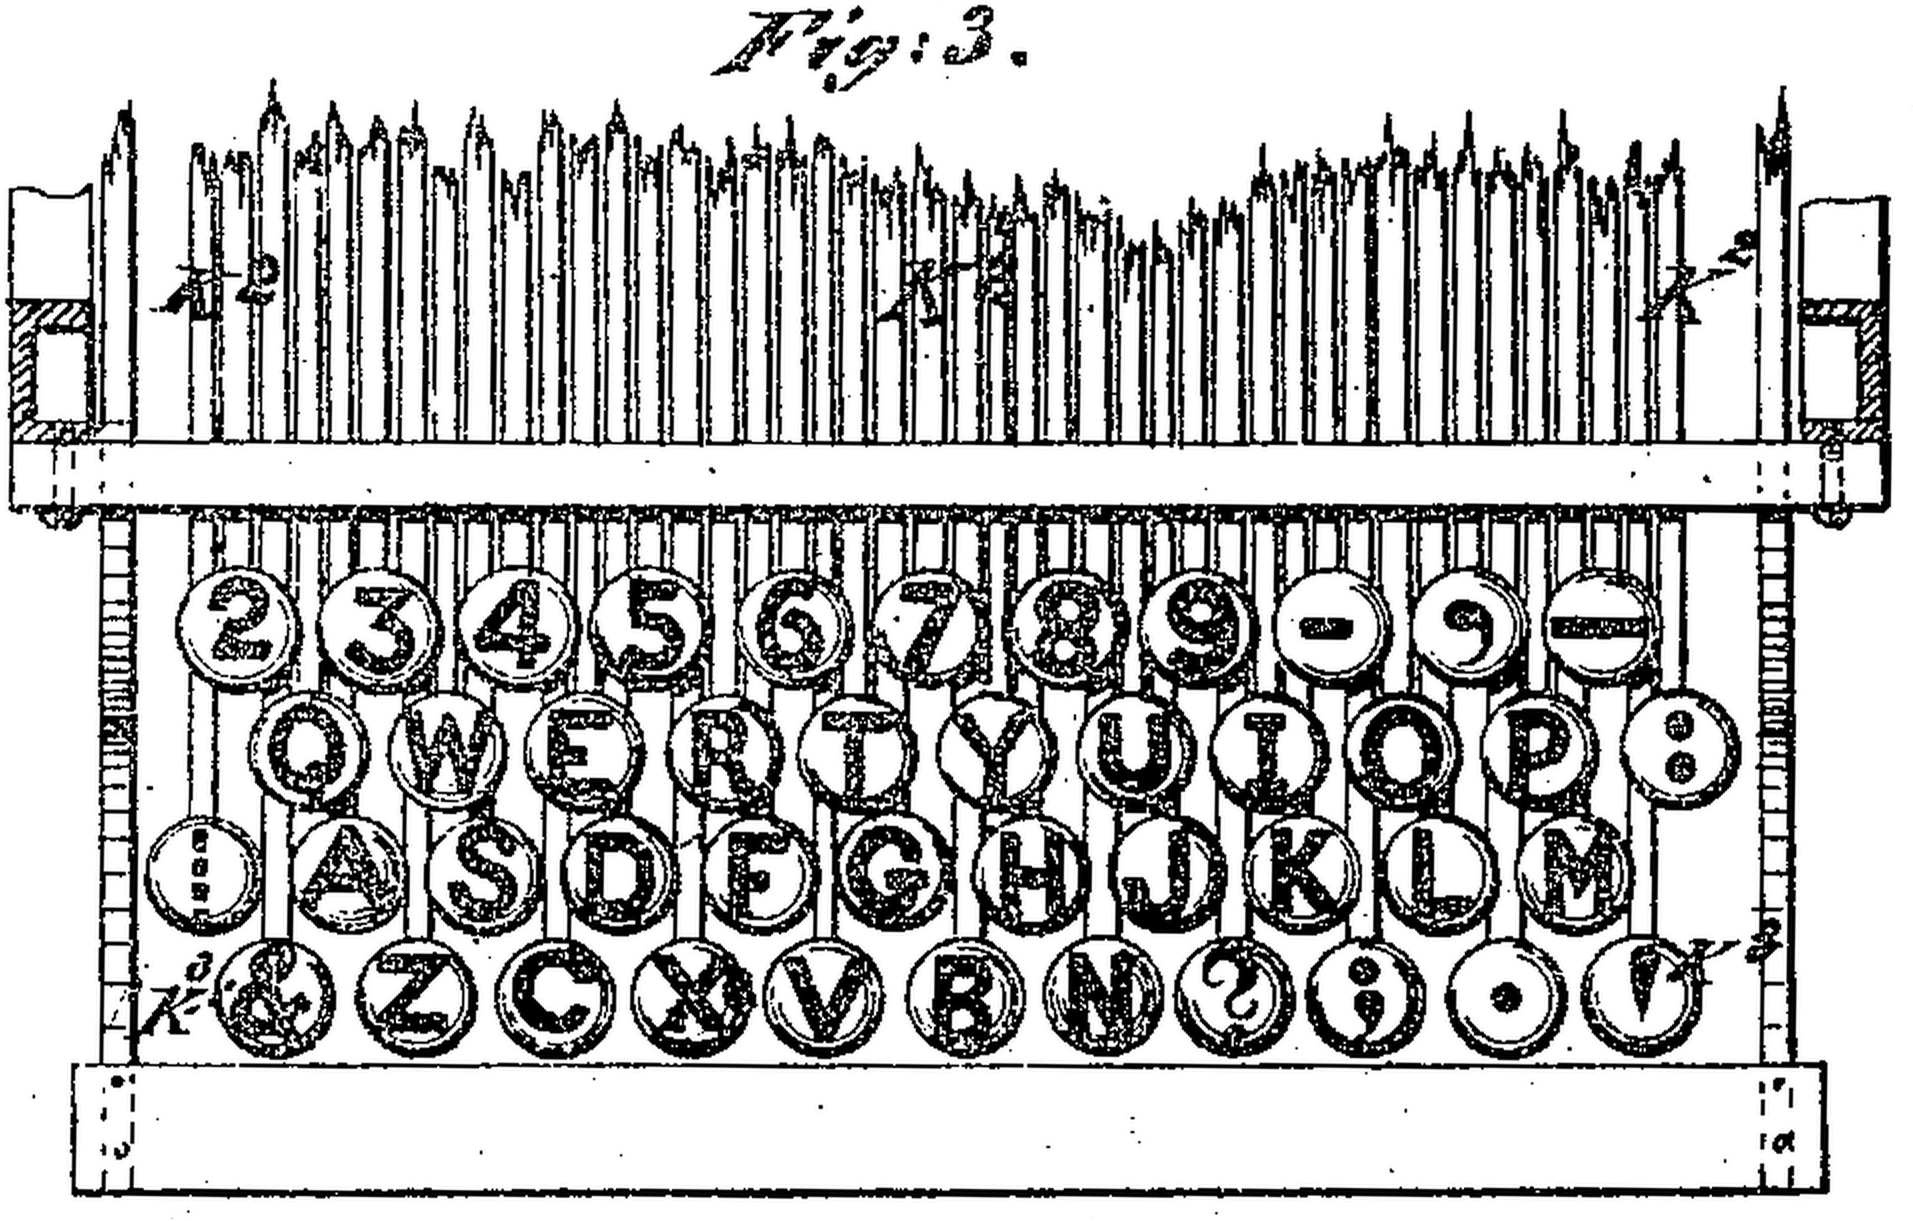 Fig: 3.
K² K² K²
2 3 4 5 6 7 8 9 - , —
Q W E R T Y U I O P :
⋮ A S D F G H J K L M
K³ & Z C X V B N ? ; . ' K³